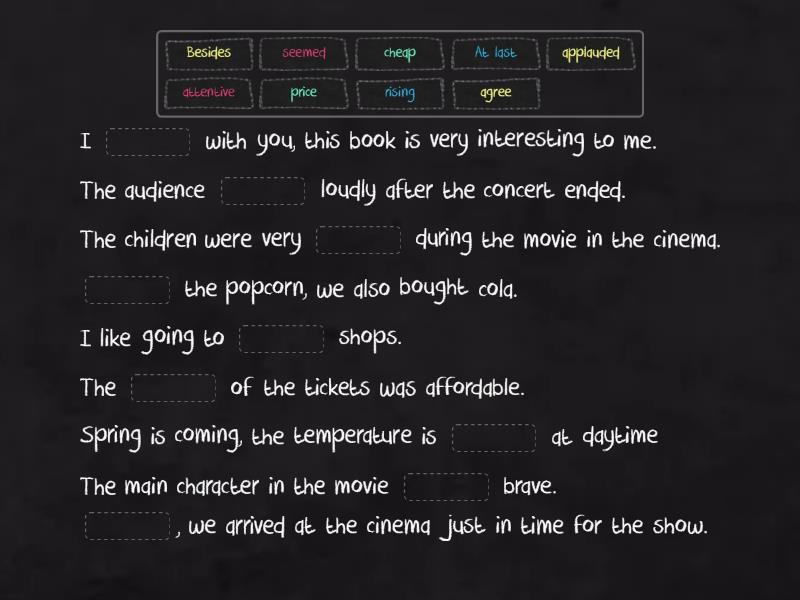 Besides seemed cheap At last applauded
attentive price rising agree
I with you, this book is very interesting to me.
The audience loudly after the concert ended.
The children were very during the movie in the cinema.
the popcorn, we also bought cola.
I like going to shops.
The of the tickets was affordable.
Spring is coming, the temperature is at daytime
The main character in the movie brave.
, we arrived at the cinema just in time for the show.